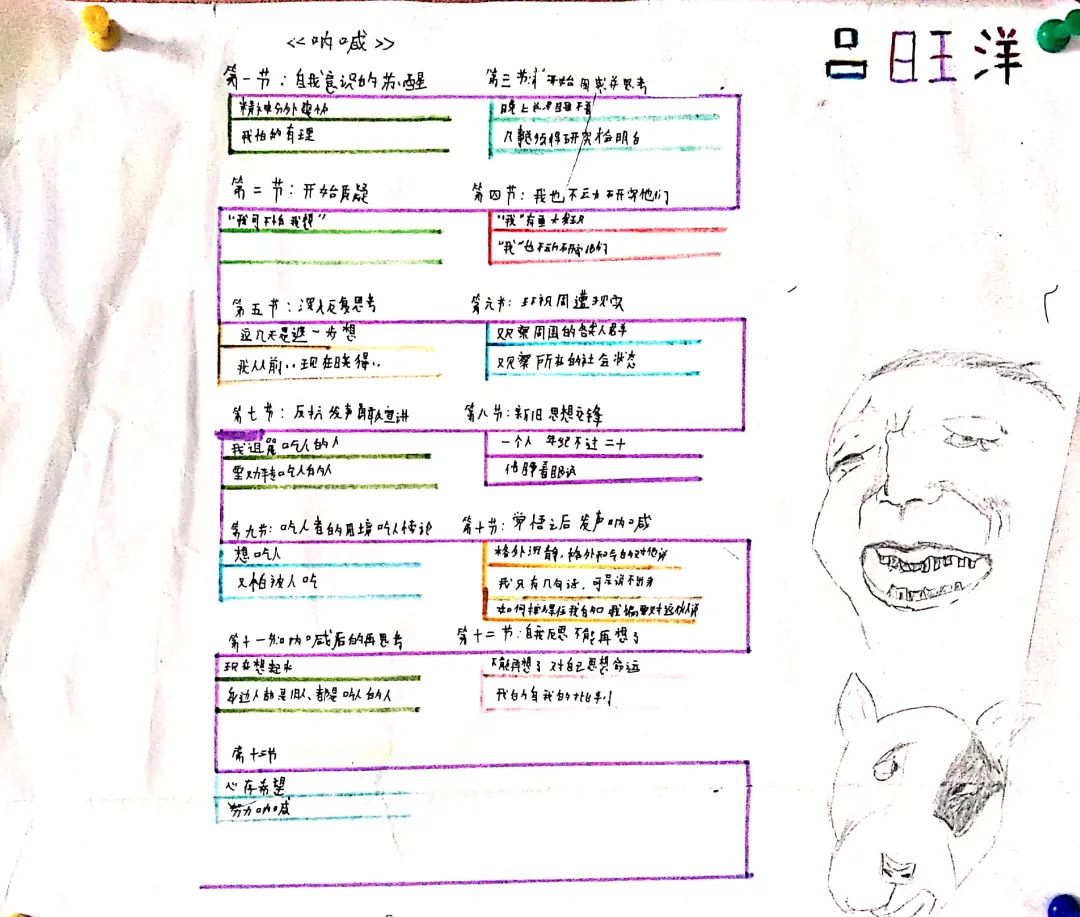 <<呐喊>>
吕日王洋
第一节：自我意识的苏醒
精神分外爽快
我怕的有理
第三节：开始困惑并思考
晚上总是睡不着
凡事须得研究才会明白
第二节：开始质疑
“我可不怕我想”
第四节：我也不云力研究他们
“我”有重大发现
第五节：深入反复思考
这几天是退一步想
我从前..现在晓得..
第六节：环视周遭现实
观察周围的各类人群
观察所在的社会状态
第七节：反抗发声劝宣讲
我诅咒吃人的人
要劝转吃人的人
第八节：新旧思想交锋
一个人 年纪不过二十
他睁着眼说
第九节：吃人者的困境吃人悖论
想吃人
又怕被人吃
第十节：觉悟之后发声呐喊
格外沉静，格外和气的对他说
我只有几句话，可是说不出来
第十一节：呐喊后的再思考
现在想起来
身边人都是旧人、都是吃人的人
第十二节：自我反思不能再想了
不能再想了 对自己思想命运
我的自我的批判
第十三节
心存希望
努力呐喊